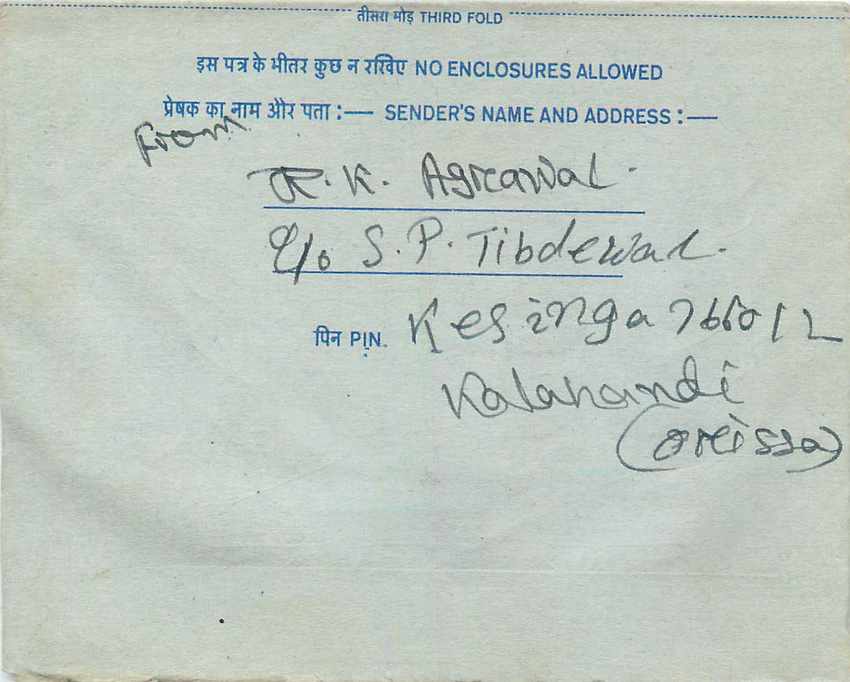 तीसरा मोड़ THIRD FOLD
इस पत्र के भीतर कुछ न रखिए NO ENCLOSURES ALLOWED
प्रेषक का नाम और पता :— SENDER'S NAME AND ADDRESS :—
From
R. K. Agrawal.
C/o S. P. Tibdewal.
पिन PIN. Kesinga 766012
Kalahandi
(Orissa)